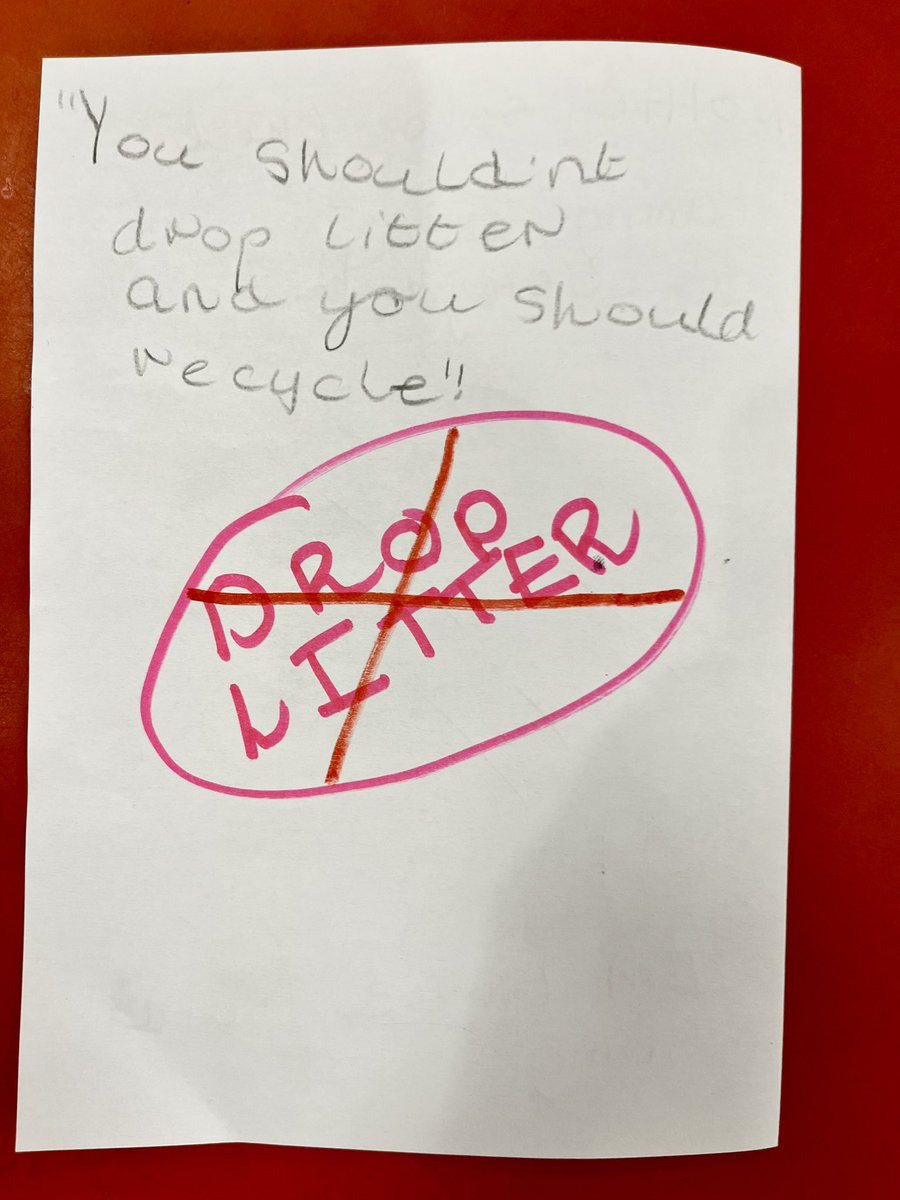 "You Should'nt
drop litter
and you should
recycle"!
DROP
LITTER